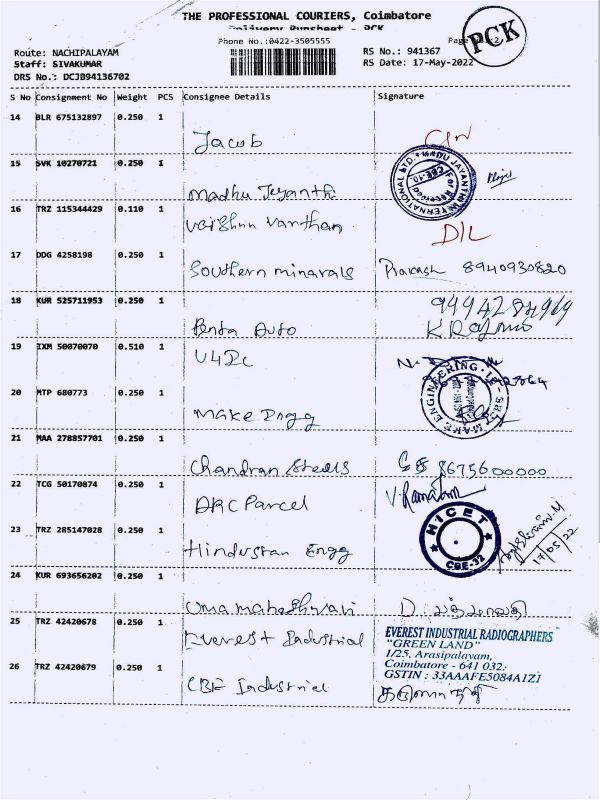 THE PROFESSIONAL COURIERS, Coimbatore
Delivery Runsheet - PCK
Phone No.:0422-3505555
PCK
Route: NACHIPALAYAM
RS No.: 941367
Staff: SIVAKUMAR
RS Date: 17-May-2022
DRS No.: DCJB94136702
S No Consignment No Weight PCS Consignee Details Signature
14 BLR 675132897 0.250 1
Jacob
15 SVK 10270721 0.250 1
MADHU JAYANTHI INTERNATIONAL LTD.
Madhu Jeyanthi
16 TRZ 115344429 0.110 1
Vaishnu Varthan
17 DDG 4258198 0.250 1
Southern minarals Prakash 8940930820
18 KUR 525711953 0.250 1
Benda Auto
19 IXM 50070070 0.510 1
20 MTP 680773 0.250 1
MAKE ENGINEERING
Make Engg
21 MAA 278857701 0.250 1
Chandran Steels 8675600000
22 TCG 50170874 0.250 1
ARC Parcel V. Ramatham
23 TRZ 285147028 0.250 1
HICET
CBE-32
17/05/22
Hindustan Engg
24 KUR 693656202 0.250 1
Umamaheshwari
25 TRZ 42420678 0.250 1
Everest Industrial
EVEREST INDUSTRIAL RADIOGRAPHERS
"GREEN LAND"
1/25, Arasipalayam,
Coimbatore - 641 032.
GSTIN : 33AAAFE5084A1Z1
26 TRZ 42420679 0.250 1
CBE Industrial